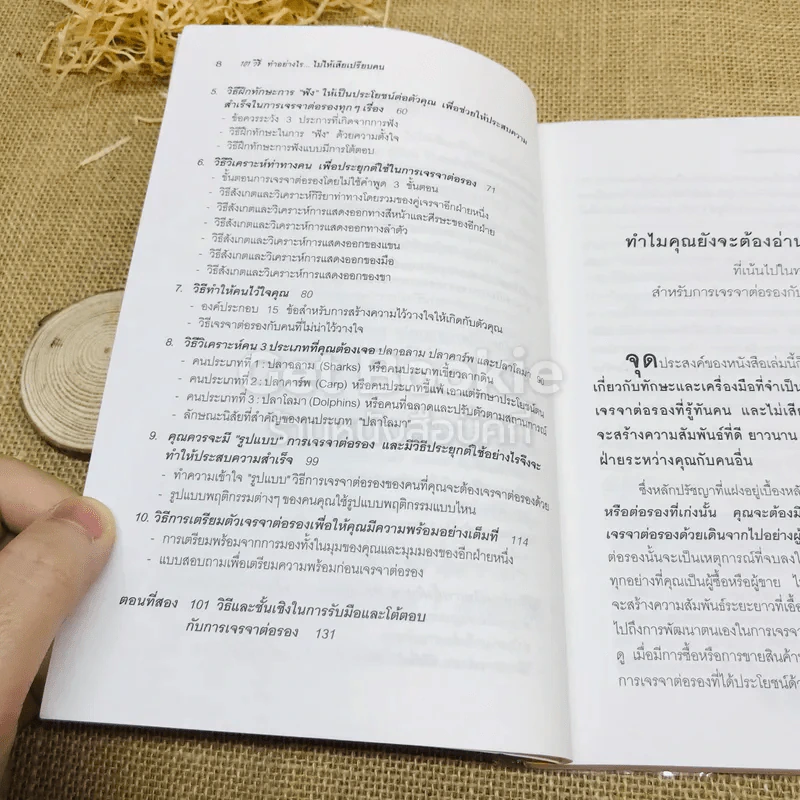 8 101 วิธี ทำอย่างไร... ไม่ให้เสียเปรียบคน
5. วิธีฝึกทักษะการ "ฟัง" ให้เป็นประโยชน์ต่อตัวคุณ เพื่อช่วยให้ประสบความ
สำเร็จในการเจรจาต่อรองทุกๆ เรื่อง 60
- ข้อควรระวัง 3 ประการที่เกิดจากการฟัง
- วิธีฝึกทักษะในการ "ฟัง" ด้วยความตั้งใจ
- วิธีฝึกทักษะการฟังแบบมีการโต้ตอบ
6. วิธีวิเคราะห์ท่าทางคน เพื่อประยุกต์ใช้ในการเจรจาต่อรอง 71
- ขั้นตอนการเจรจาต่อรองโดยไม่ใช้คำพูด 3 ขั้นตอน
- วิธีสังเกตและวิเคราะห์กิริยาท่าทางโดยรวมของคู่เจรจาอีกฝ่ายหนึ่ง
- วิธีสังเกตและวิเคราะห์การแสดงออกทางสีหน้าและศีรษะของอีกฝ่าย
- วิธีสังเกตและวิเคราะห์การแสดงออกทางลำตัว
- วิธีสังเกตและวิเคราะห์การแสดงออกของแขน
- วิธีสังเกตและวิเคราะห์การแสดงออกของมือ
- วิธีสังเกตและวิเคราะห์การแสดงออกของขา
7. วิธีทำให้คนไว้ใจคุณ 80
- องค์ประกอบ 15 ข้อสำหรับการสร้างความไว้วางใจให้เกิดกับตัวคุณ
- วิธีเจรจาต่อรองกับคนที่ไม่น่าไว้วางใจ
8. วิธีวิเคราะห์คน 3 ประเภทที่คุณต้องเจอ ปลาฉลาม ปลาคาร์พ และปลาโลมา 90
- คนประเภทที่ 1 : ปลาฉลาม (Sharks) หรือคนประเภทเขี้ยวลากดิน
- คนประเภทที่ 2 : ปลาคาร์พ (Carp) หรือคนประเภทขี้แพ้ เอาแต่รักษาประโยชน์ตน
- คนประเภทที่ 3 : ปลาโลมา (Dolphins) หรือคนที่ฉลาดและปรับตัวตามสถานการณ์
- ลักษณะนิสัยที่สำคัญของคนประเภท "ปลาโลมา"
9. คุณควรจะมี "รูปแบบ" การเจรจาต่อรอง และมีวิธีประยุกต์ใช้อย่างไรจึงจะ
ทำให้ประสบความสำเร็จ 99
- ทำความเข้าใจ "รูปแบบ" วิธีการเจรจาต่อรองของคนที่คุณจะต้องเจรจาต่อรองด้วย
- รูปแบบพฤติกรรมต่างๆ ของคนคุณใช้รูปแบบพฤติกรรมแบบไหน
10. วิธีการเตรียมตัวเจรจาต่อรองเพื่อให้คุณมีความพร้อมอย่างเต็มที่ 114
- การเตรียมพร้อมจากการมองทั้งในมุมของคุณและมุมมองของอีกฝ่ายหนึ่ง
- แบบสอบถามเพื่อเตรียมความพร้อมก่อนเจรจาต่อรอง
ตอนที่สอง 101 วิธีและชั้นเชิงในการรับมือและโต้ตอบ
กับการเจรจาต่อรอง 131
ทำไมคุณยังจะต้องอ่าน
ที่เน้นไปในท
สำหรับการเจรจาต่อรองกับ
จุดประสงค์ของหนังสือเล่มนี้ก็
เกี่ยวกับทักษะและเครื่องมือที่จำเป็น
เจรจาต่อรองที่รู้ทันคน และไม่เสีย
จะสร้างความสัมพันธ์ที่ดี ยาวนาน
ฝ่ายระหว่างคุณกับคนอื่น
ซึ่งหลักปรัชญาที่แฝงอยู่เบื้องหลัง
หรือต่อรองที่เก่งนั้น คุณจะต้องมี
เจรจาต่อรองด้วยเดินจากไปอย่างผู้
ต่อรองนั้นจะเป็นเหตุการณ์ที่จบลงใ
ทุกอย่างที่คุณเป็นผู้ซื้อหรือผู้ขาย ไ
จะสร้างความสัมพันธ์ระยะยาวที่เอื้อ
ไปถึงการพัฒนาตนเองในการเจรจา
ดู เมื่อมีการซื้อหรือการขายสินค้า
การเจรจาต่อรองที่ได้ประโยชน์ด้ว